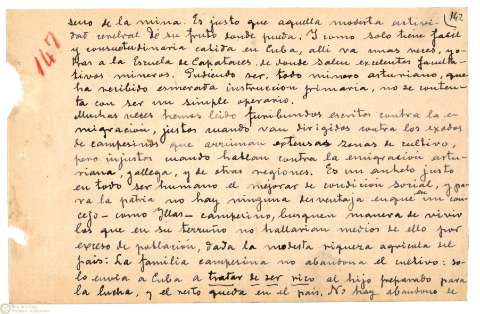 142
147
seno de la mina. Es justo que aquella modesta activi-
dad cerebral dé su fruto donde pueda. Y como solo tiene facil
y consuetudinaria cabida en Cuba, alli va unas veces, y o-
tras a la Escuela de Capataces de donde salen excelentes faculta-
tivos mineros. Pudiendo ser, todo minero asturiano, que
ha recibido esmerada instruccion primaria, no se conten-
ta con ser un simple operario.
Muchas veces hemos leido furibundos escritos contra la e-
migración, justos cuando van dirigidos contra los exodos
de campesinos que arruinan extensas zonas de cultivo,
pero injustos cuando hablan contra la emigración astu-
riana, gallega, y de otras regiones. Es un anhelo justo
en todo ser humano el mejorar de condición social, y pa-
ra la patria no hay ninguna desventaja en que en un con-
cejo - como Illas - campesino, busquen manera de vivir
los que en su terruño no hallarian medios de ello por
exceso de población, dada la modesta riqueza agricola del
pais: La familia campesina no abandona el cultivo: so-
lo envia a Cuba a tratar de ser rico al hijo preparado para
la lucha, y el resto queda en el pais. No hay abandono de